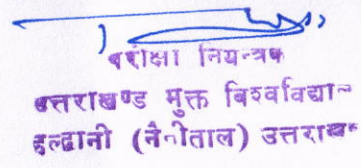 परीक्षा नियन्त्रक
उत्तराखण्ड मुक्त विश्वविद्या
हल्द्वानी (नैनीताल) उत्तराख